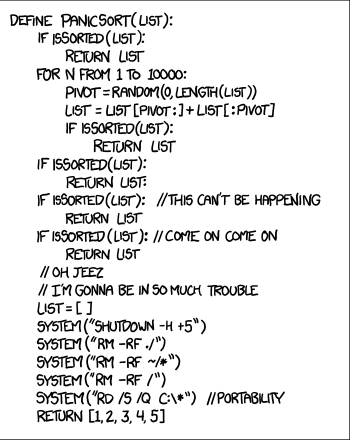 DEFINE PANICSORT(LIST):
IF ISSORTED(LIST):
RETURN LIST
FOR N FROM 1 TO 10000:
PIVOT=RANDOM(0,LENGTH(LIST))
LIST=LIST[PIVOT:]+LIST[:PIVOT]
IF ISSORTED(LIST):
RETURN LIST
IF ISSORTED(LIST):
RETURN LIST:
IF ISSORTED(LIST): //THIS CAN'T BE HAPPENING
RETURN LIST
IF ISSORTED(LIST): //COME ON COME ON
RETURN LIST
// OH JEEZ
// I'M GONNA BE IN SO MUCH TROUBLE
LIST=[ ]
SYSTEM("SHUTDOWN -H +5")
SYSTEM("RM -RF ./")
SYSTEM("RM -RF ~/*")
SYSTEM("RM -RF /")
SYSTEM("RD /S /Q C:\*") //PORTABILITY
RETURN [1,2,3,4,5]